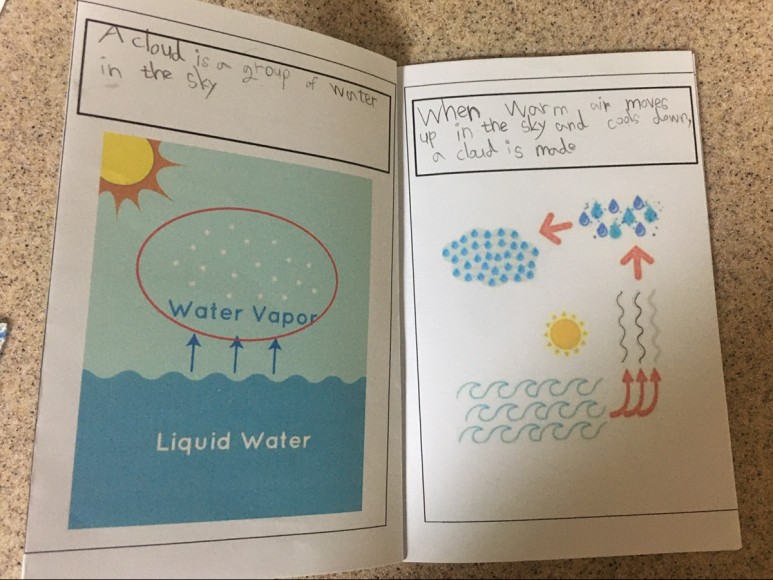 A cloud is a group of water
in the sky
Water Vapor
Liquid Water
When Warm air moves
up in the sky and cools down,
a cloud is made